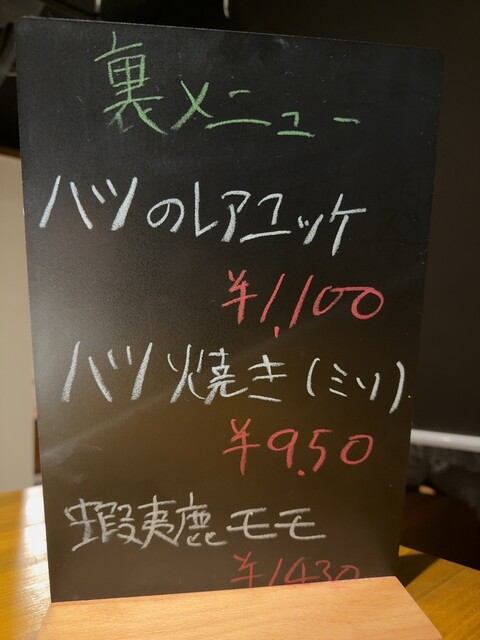 裏メニュー
ハツのレアユッケ
¥1,100
ハツ焼き(ミソ)
¥950
蝦夷鹿モモ
¥1430